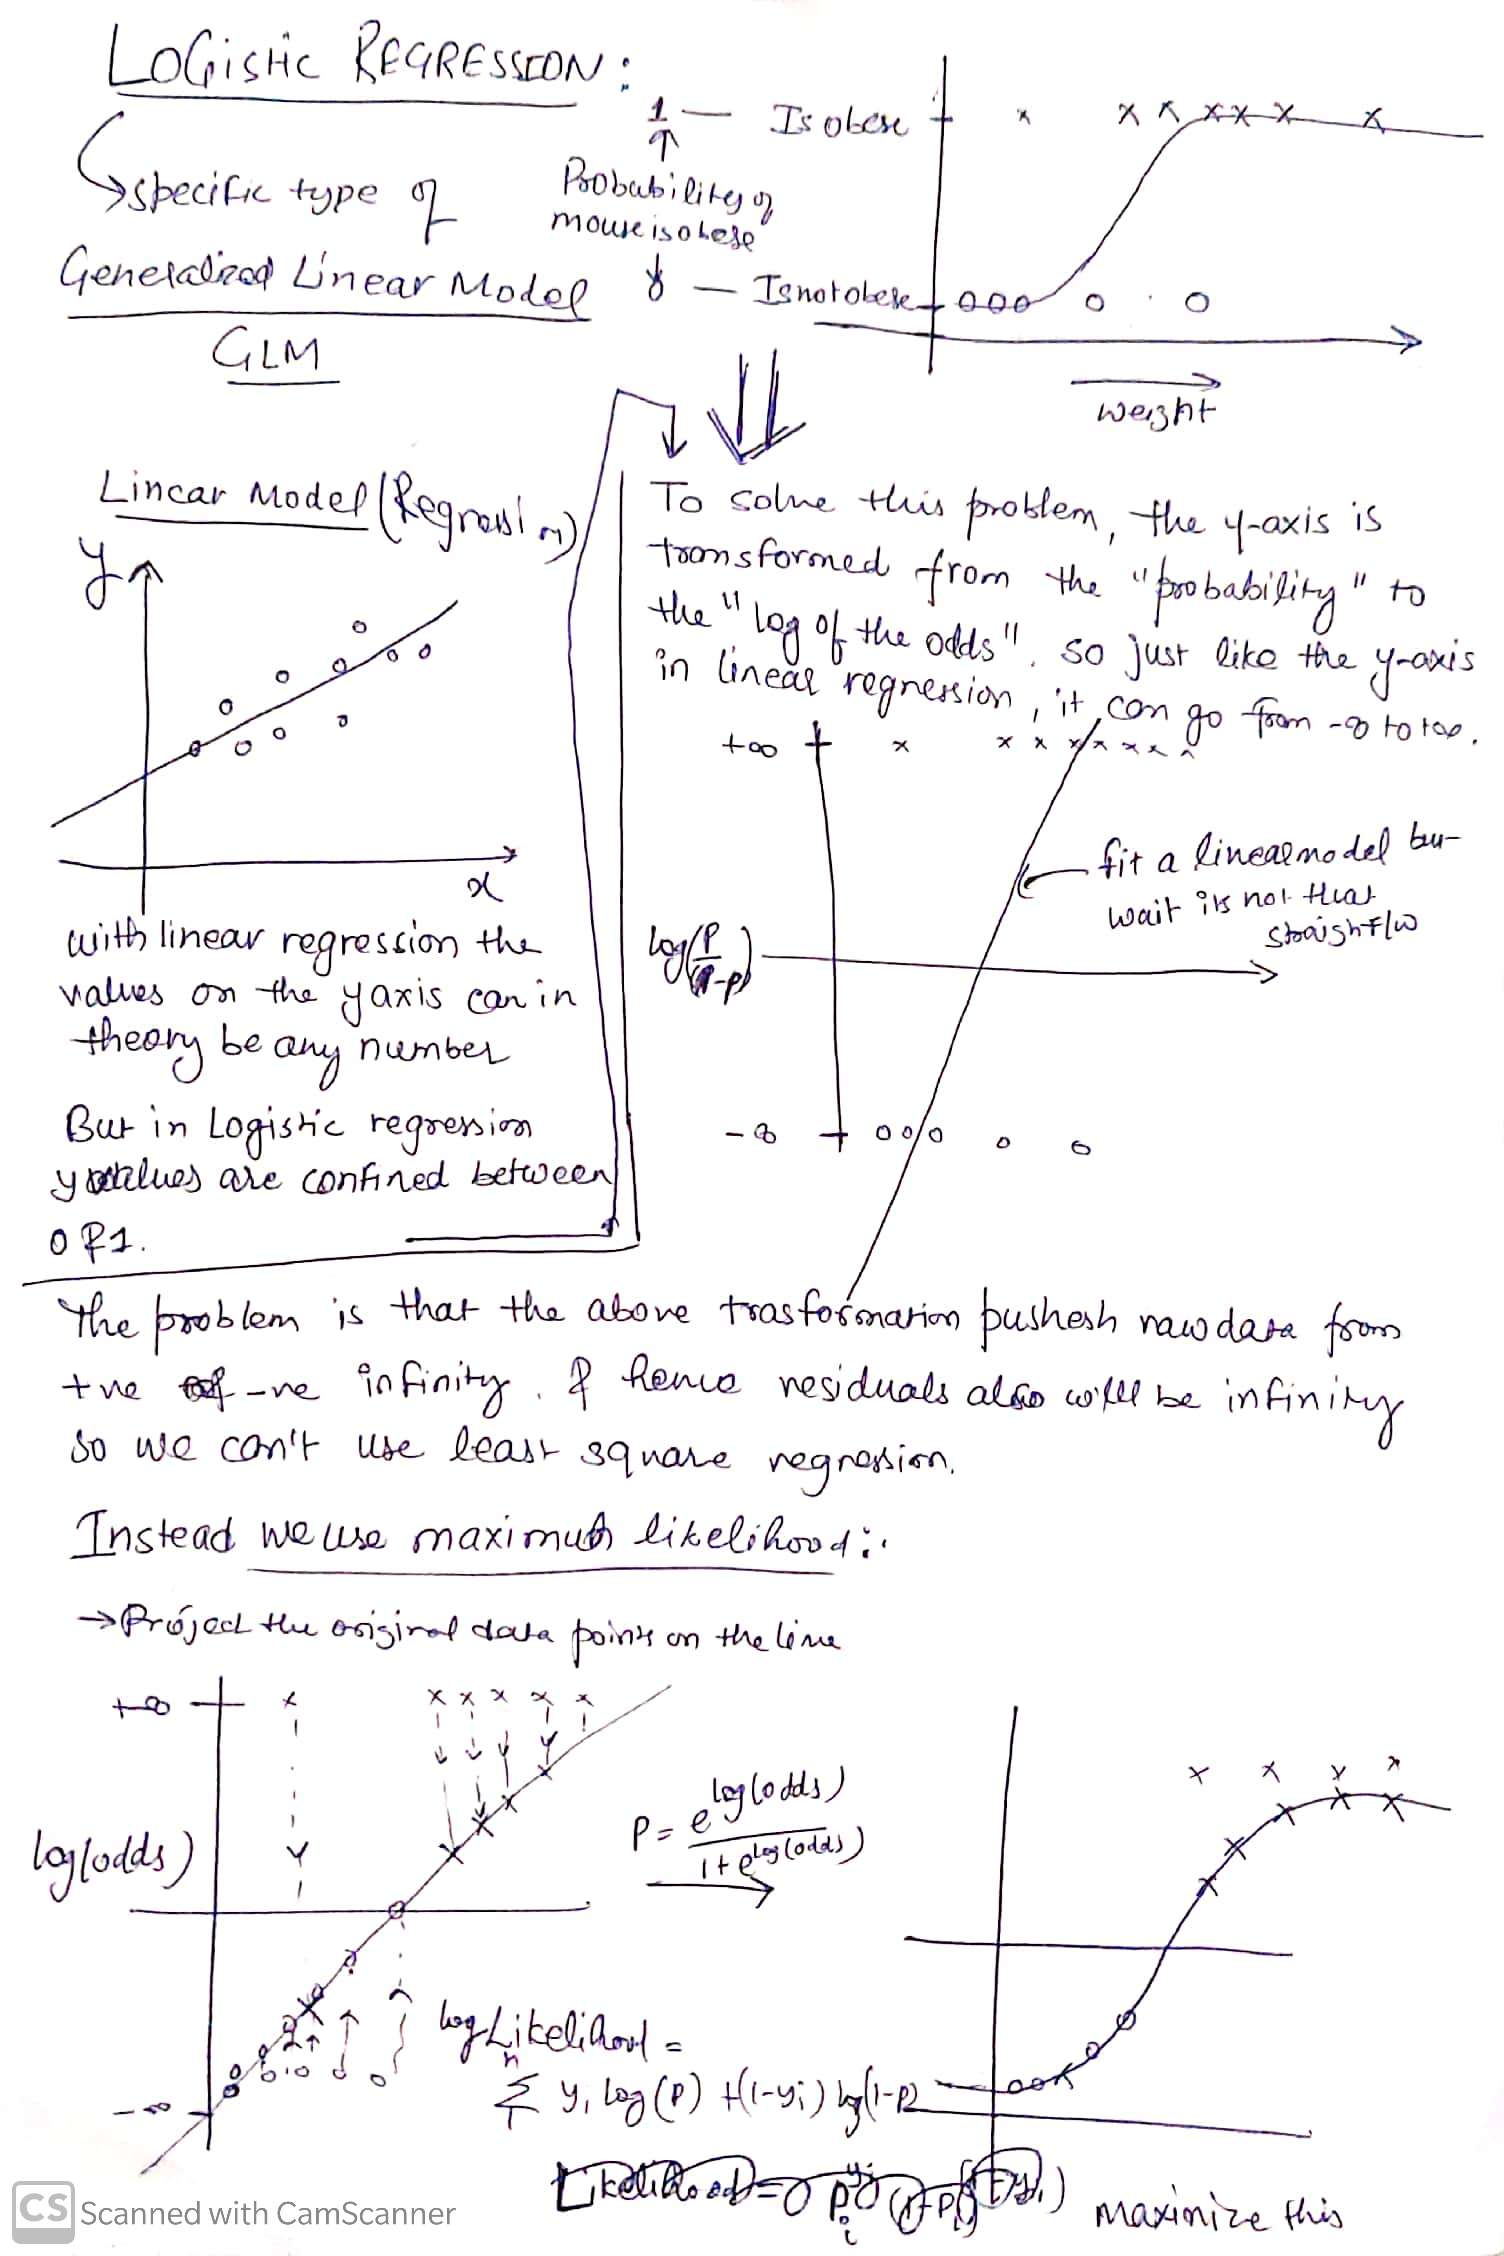 LOGistic REGRESSION :
specific type of
Generalized Linear Model
GLM
1 — Is obese
Probability of
mouse is obese
— Is not obese
weight
Linear Model (Regression)
y
x
with linear regression the
values on the yaxis can in
theory be any number
But in Logistic regression
y values are confined between
0 & 1.
To solve this problem, the y-axis is
transformed from the "probability" to
the "log of the odds". so just like the y-axis
in linear regression, it can go from -∞ to +∞.
+∞
fit a linear model but
wait its not that
log(P/(1-P))
-∞
The problem is that the above trasformation pushesh raw data from
+ve -ve infinity. & hence residuals also will be infinity
so we can't use least square regression.
Instead we use maximum likelihood :
→ Project the original data points on the line
+∞
log(odds)
P = e^log(odds) / 1+e^log(odds)
-∞
log Likelihood =
n Σ yi log(P) +(1-yi) log(1-P
maximize this
CS Scanned with CamScanner